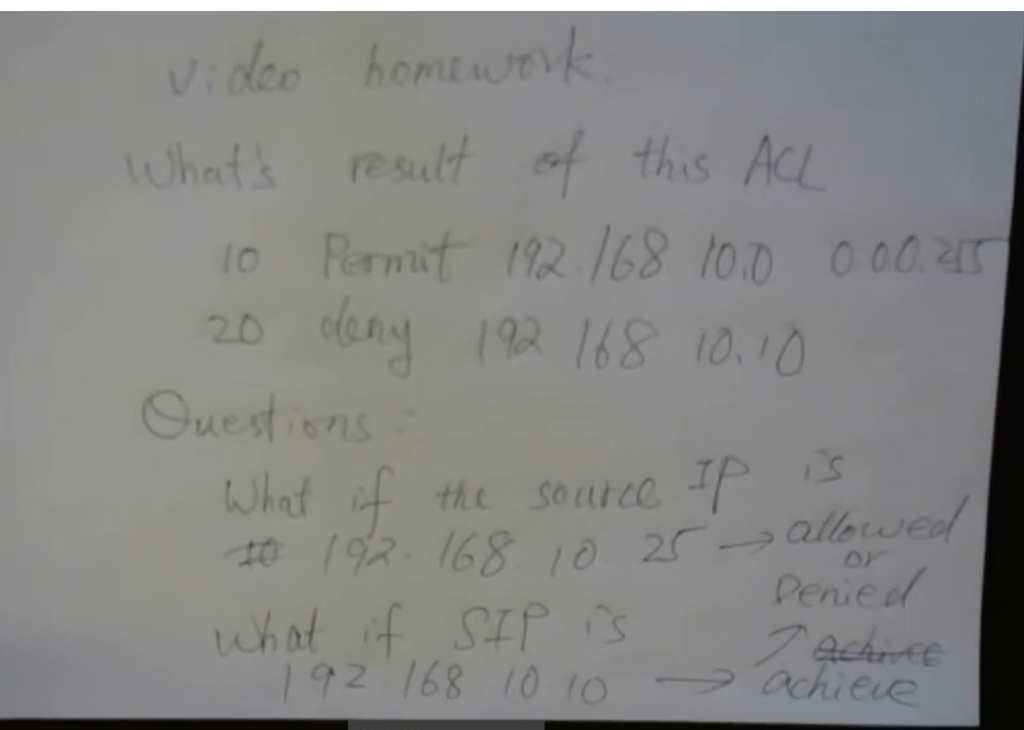 video homework:
What's result of this ACL
10 Permit 192.168 10.0 0.0.0.255
20 deny 192 168 10.10
Questions:
What if the source IP is
10 192.168.10 25 → allowed
or
Denied
What if SIP is
↗ achivce
192 168 10 10 → achieve